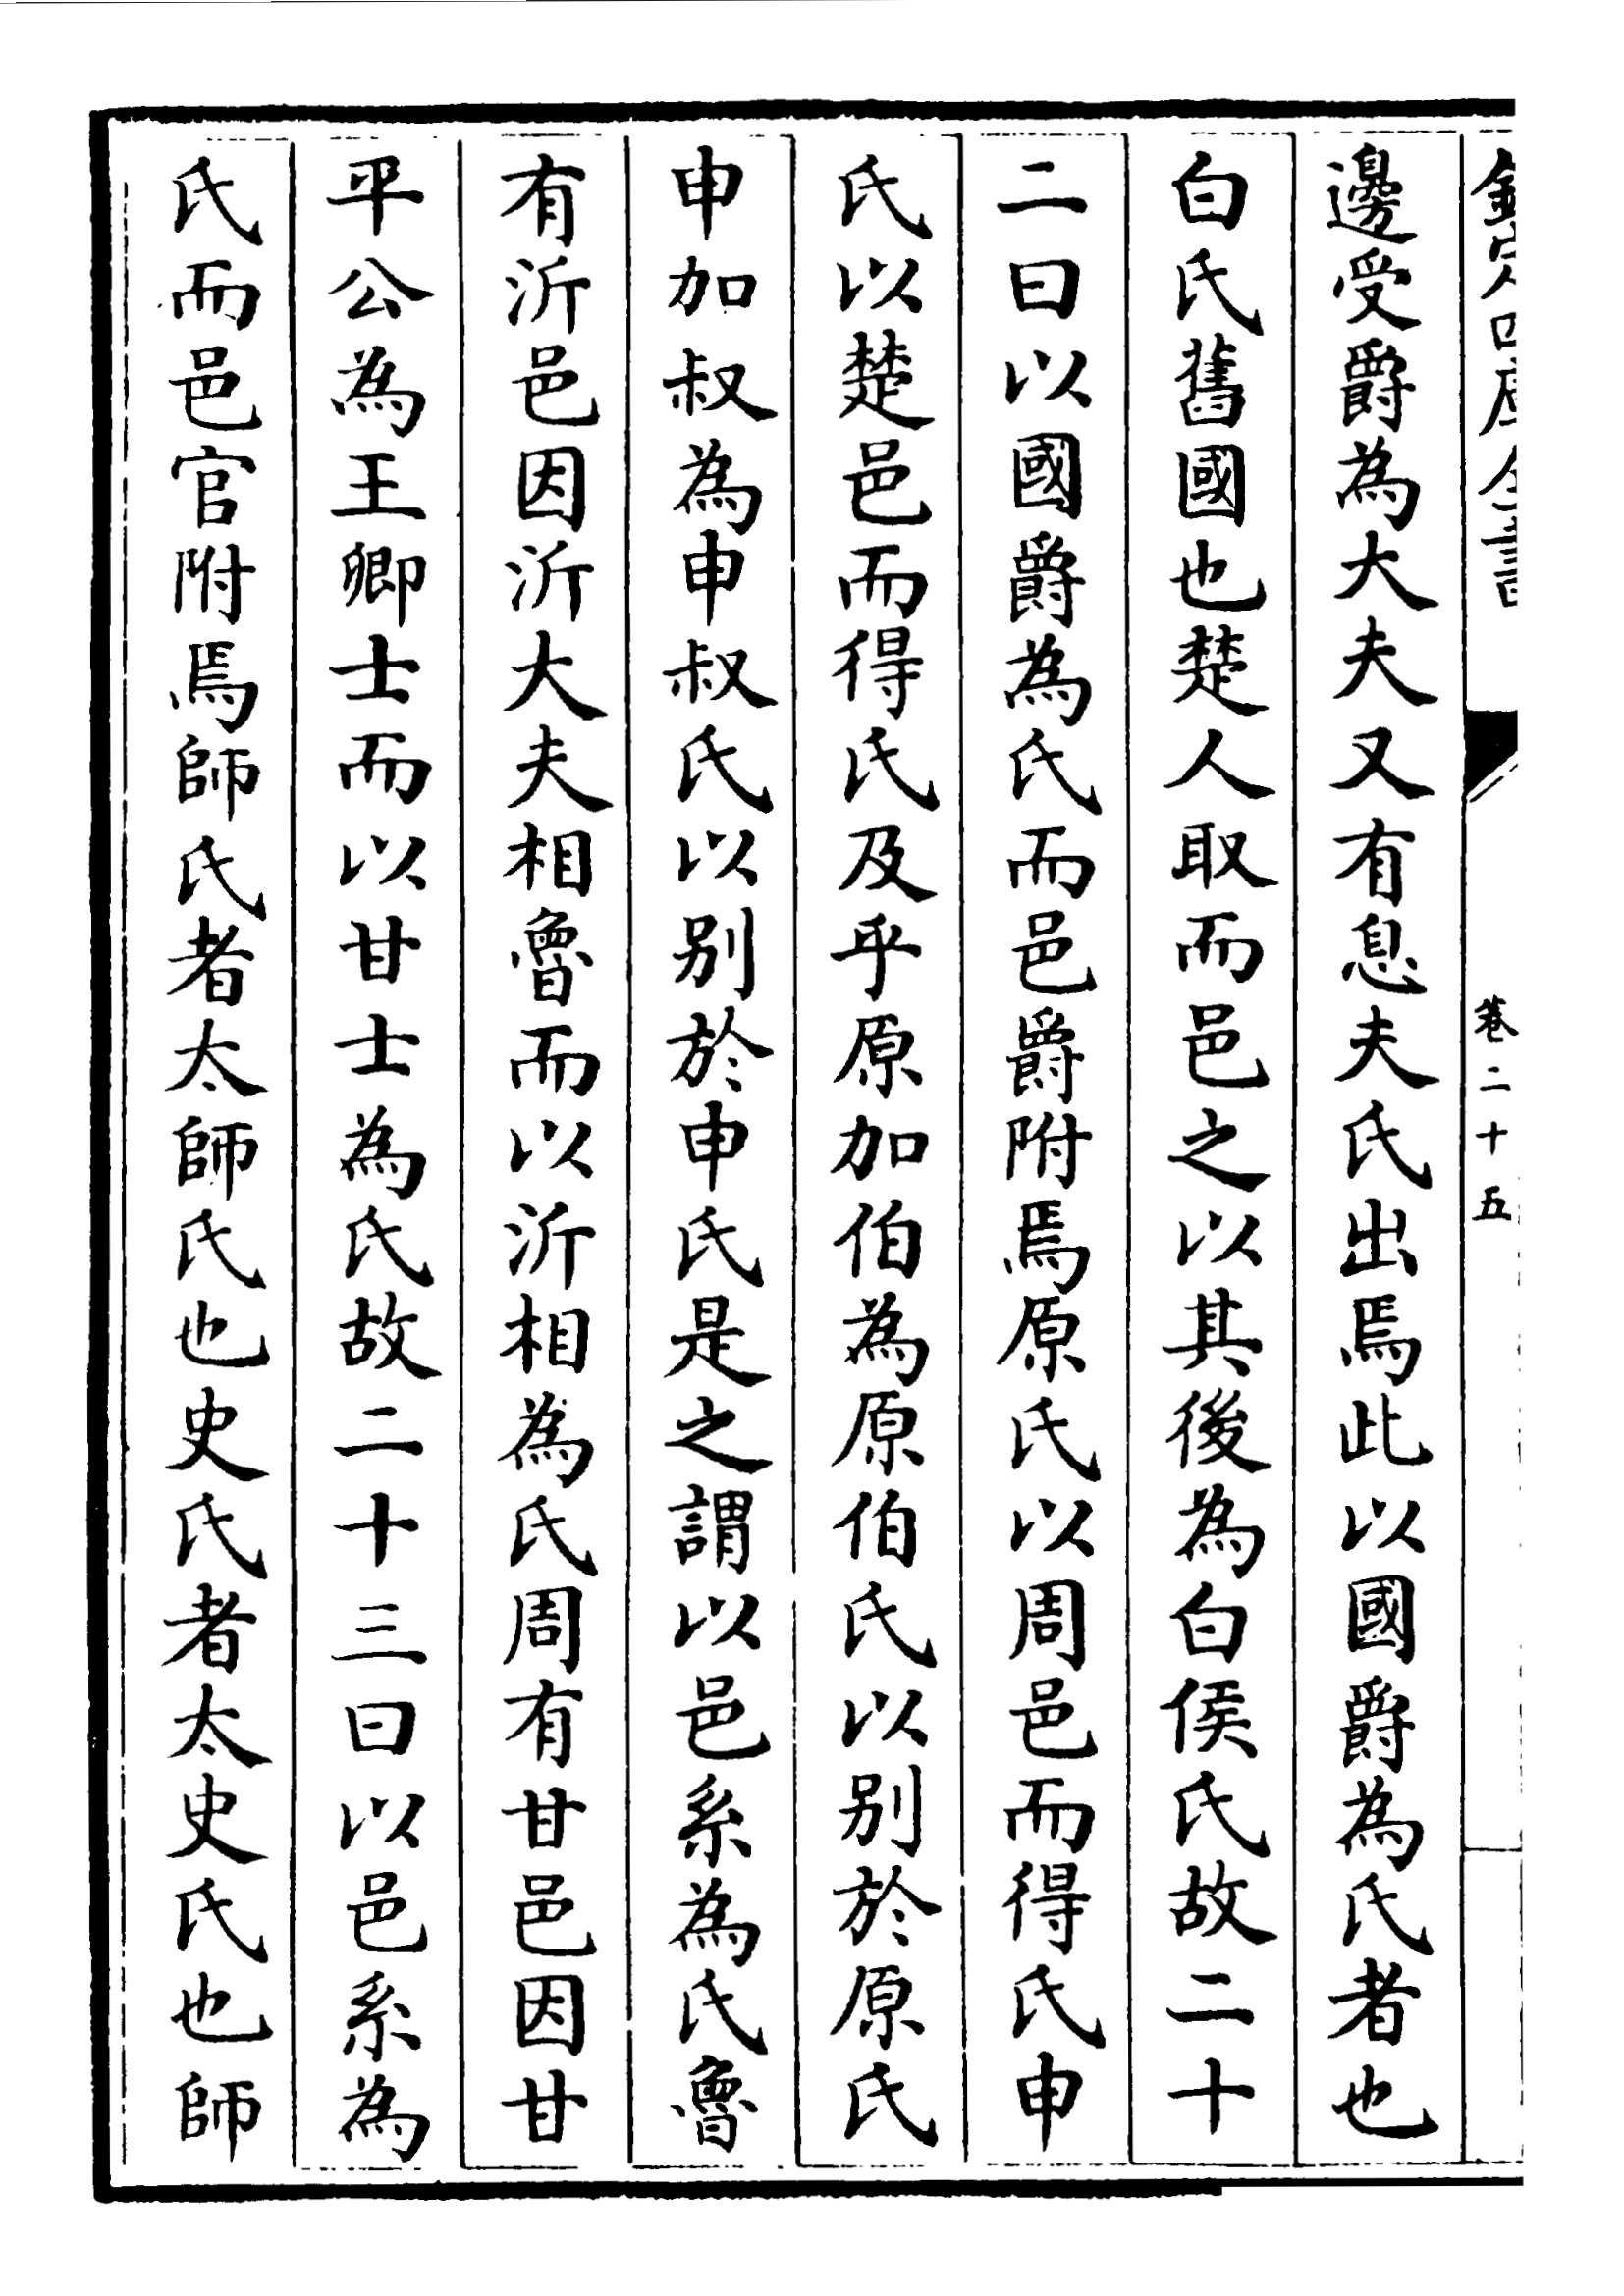 欽定四庫全書
卷二十五
邊受爵為大夫又有息夫氏出焉此以國爵為氏者也
白氏舊國也楚人取而邑之以其後為白侯氏故二十
二曰以國爵為氏而邑爵附焉原氏以周邑而得氏申
氏以楚邑而得氏及乎原加伯為原伯氏以别於原氏
申加叔為申叔氏以别於申氏是之謂以邑系為氏魯
有沂邑因沂大夫相魯而以沂相為氏周有甘邑因甘
平公為王卿士而以甘士為氏故二十三曰以邑系為
氏而邑官附焉師氏者太師氏也史氏者太史氏也師